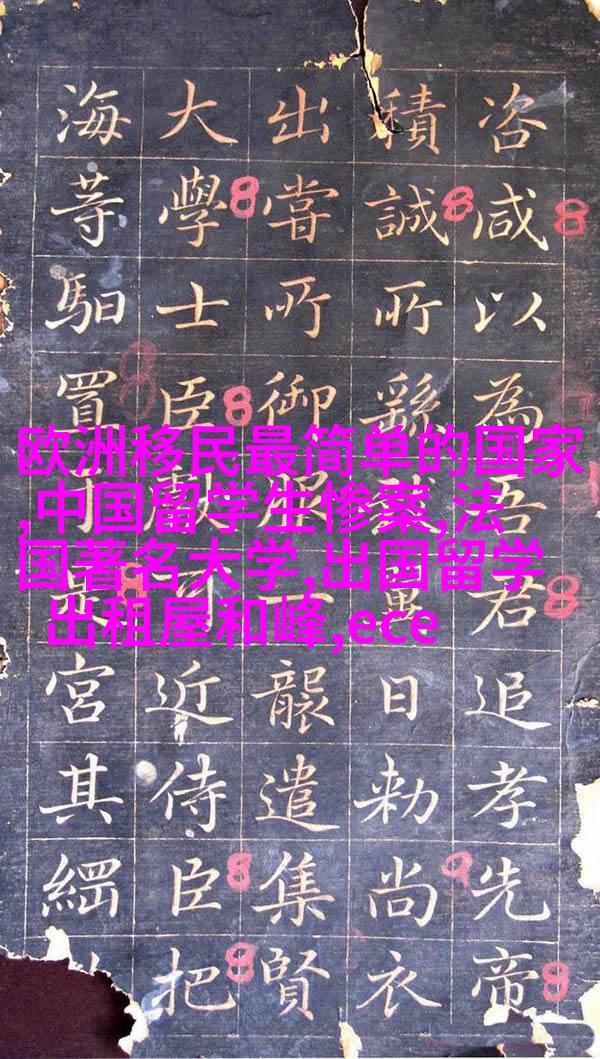 咨咸以為吾君追孝先帝
積誠所繇日勅尚衣
出嘗所御服一襲遣集賢
大學士臣獻近侍臣把
海等馹置于宮其綱
欧洲移民最简单的国家
,中国留学生惨案,法
国著名大学,出国留学
出租屋和峰,ece